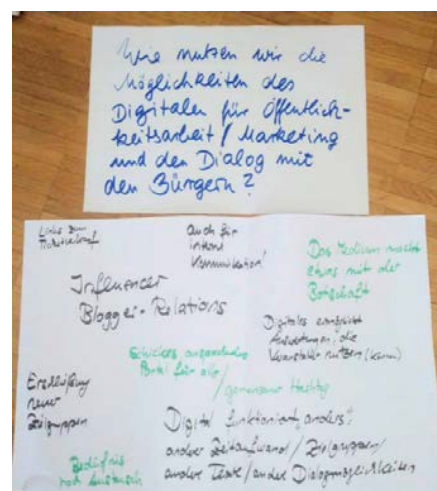 Wie nutzen wir die
Möglichkeiten des
Digitalen für Öffentlich-
keitsarbeit / Marketing
und den Dialog mit
den Bürgern?
Links zum
Ticketverkauf
auch für
interne
Kommunikation!
Das Medium macht
etwas mit der
Botschaft
Influencer
Blogger-Relations
Digitales ermöglicht
Auswertungen, die
Veranstalter nutzen (kann)
Schickes ansprechendes
Portal für alle /
gemeinsamer Hashtag
Erschließung
neuer
Zielgruppen
Digital funktioniert "anders":
anderer Zeitaufwand / Zielgruppen /
andere Texte / andere Dialogmöglichkeiten
Bedürfnis
nach Austausch